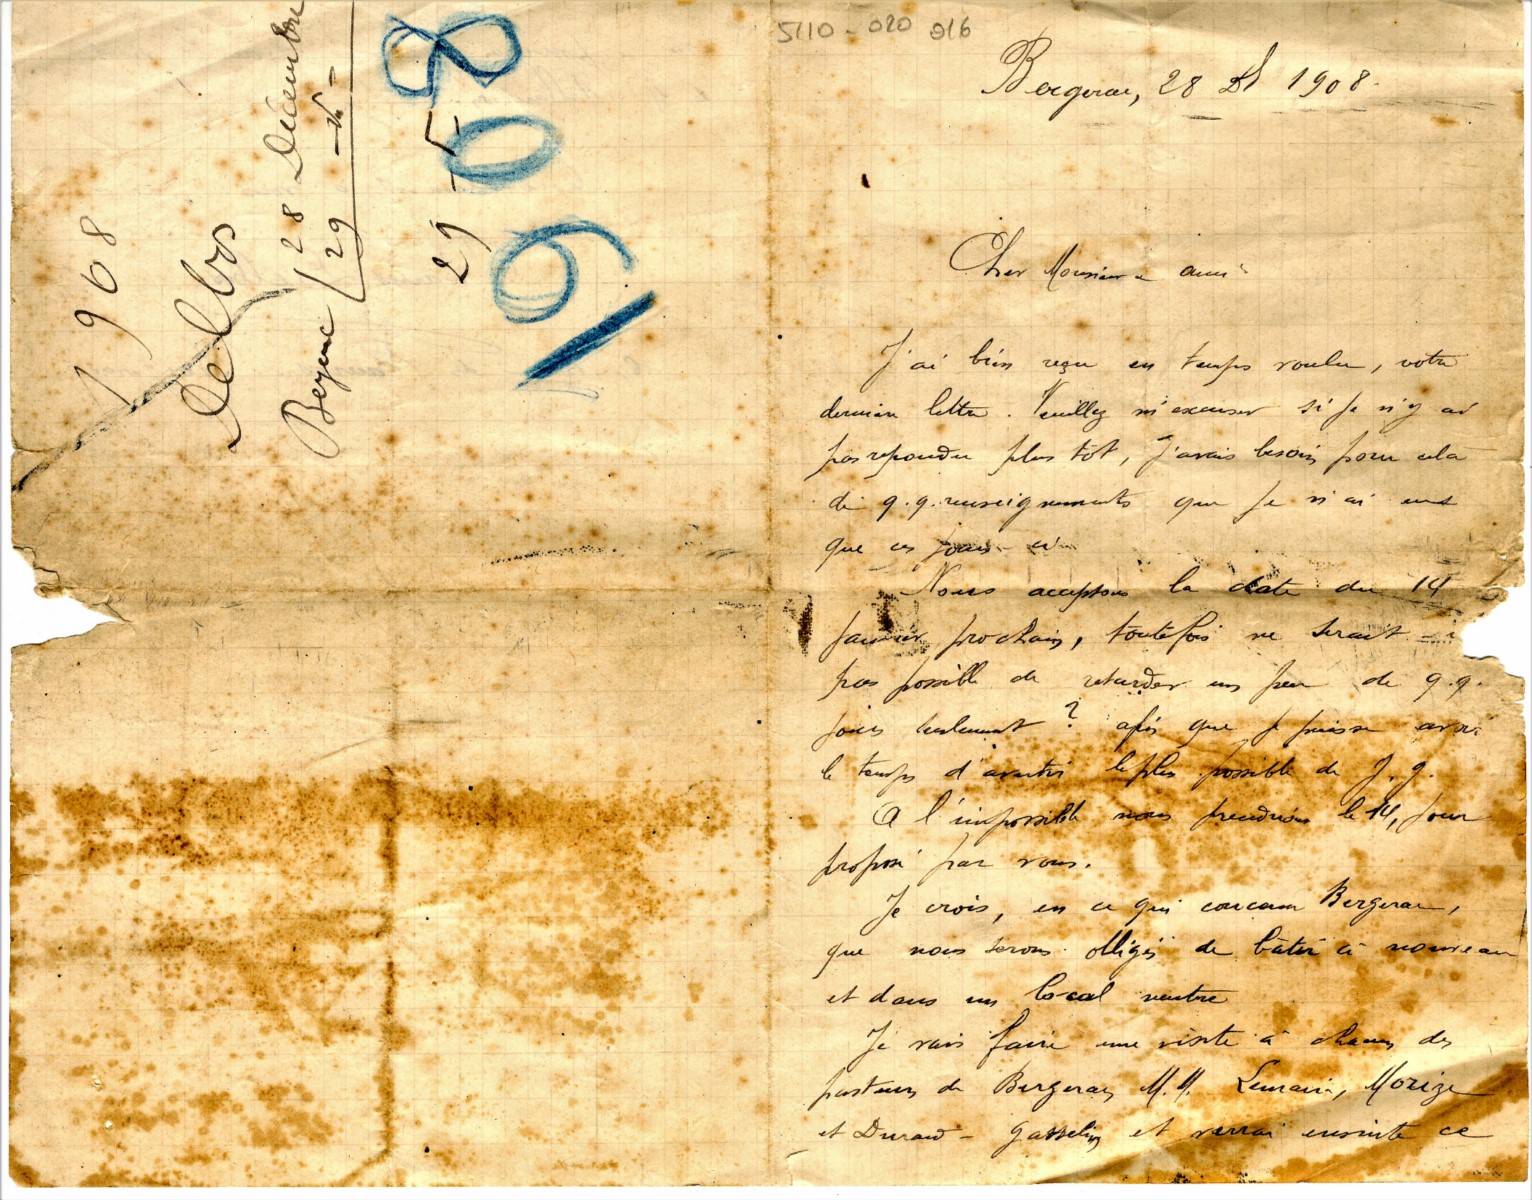 1908
Delbos
Bergerac 28 Décembre
29 - do -
29 - 
1908
5110-020 016
Bergerac, 28 Xbre 1908.
Cher Monsieur et ami
J'ai bien reçu en temps voulu, votre
dernière lettre. Veuillez m'excuser si je n'y ai
pas répondu plus tôt, j'avais besoin pour cela
de q.q. renseignements que je n'ai eus
que ces jours-ci
Nous acceptons la date du 14
janvier prochain, toutefois ne serait-i
pas possible de retarder un peu de q.q.
jours seulement ? afin que je puisse avoir
le temps d'avertir le plus possible de J.G.
A l'impossible nous prendrions le 14, jour
proposé par vous.
Je crois, en ce qui concerne Bergerac,
que nous serons obligés de bâtir à nouveau
et dans un local neutre
Je vais faire une visite à chacun des
pasteurs de Bergerac, M.M. Morize
et Durand-Gasselin et verrai ensuite ce